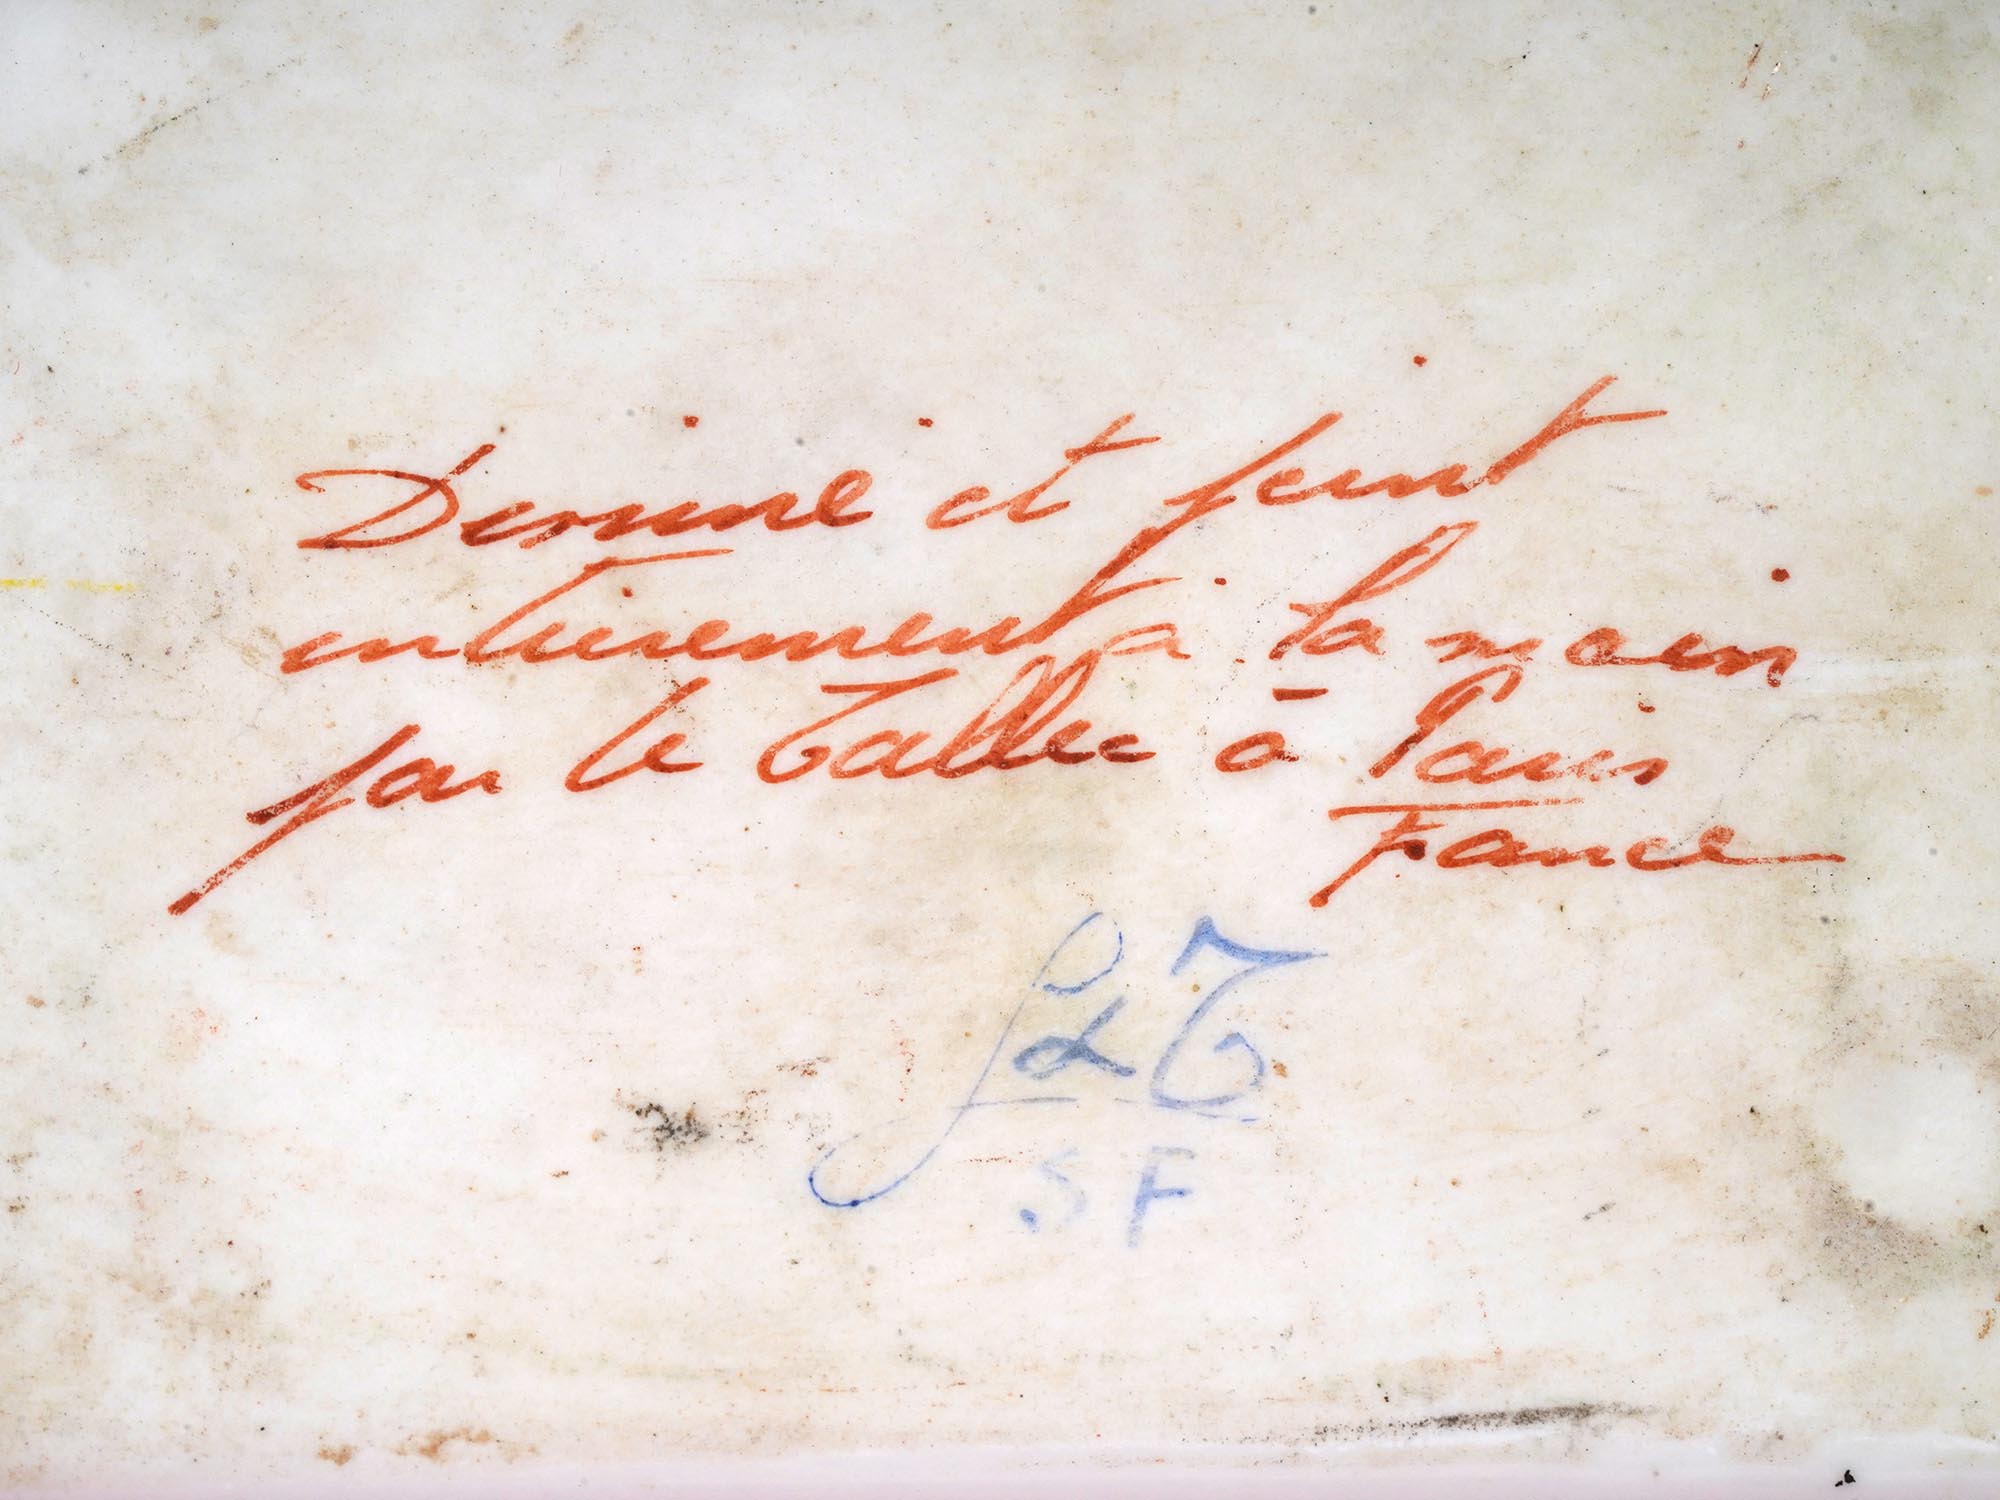 Dessiné et peint
entièrement à la main
par le Tallec à Paris
France
LLT
SF